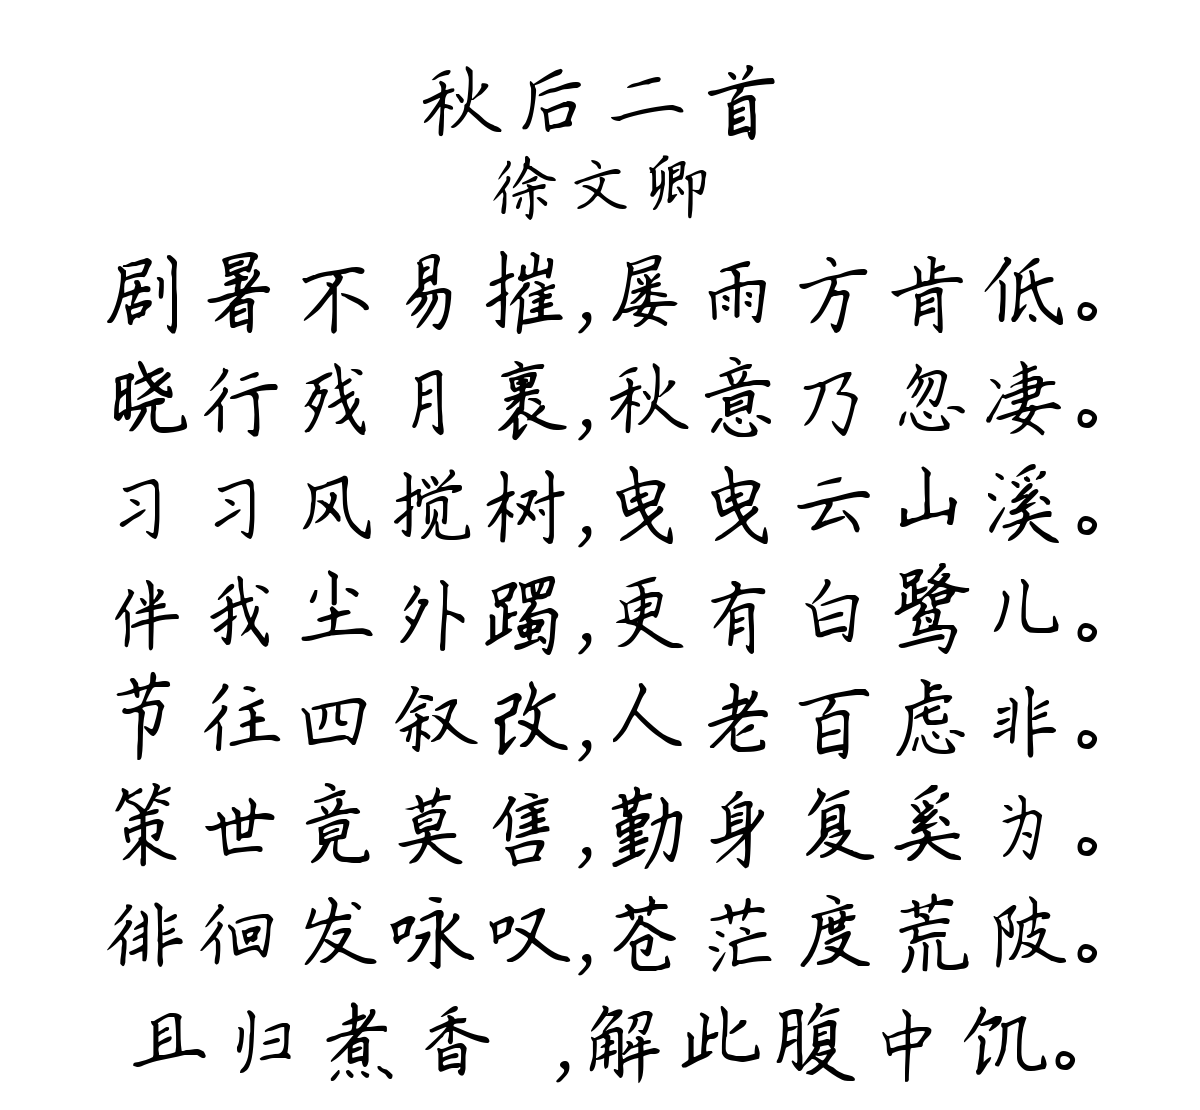 秋后二首
徐文卿
剧暑不易摧,屡雨方肯低。
晓行残月裹,秋意乃忽凄。
习习风搅树,曳曳云山溪。
伴我尘外躅,更有白鹭儿。
节往四叙改,人老百虑非。
策世竟莫售,勤身复奚为。
徘徊发咏叹,苍茫度荒陂。
且归煮香 ,解此腹中饥。